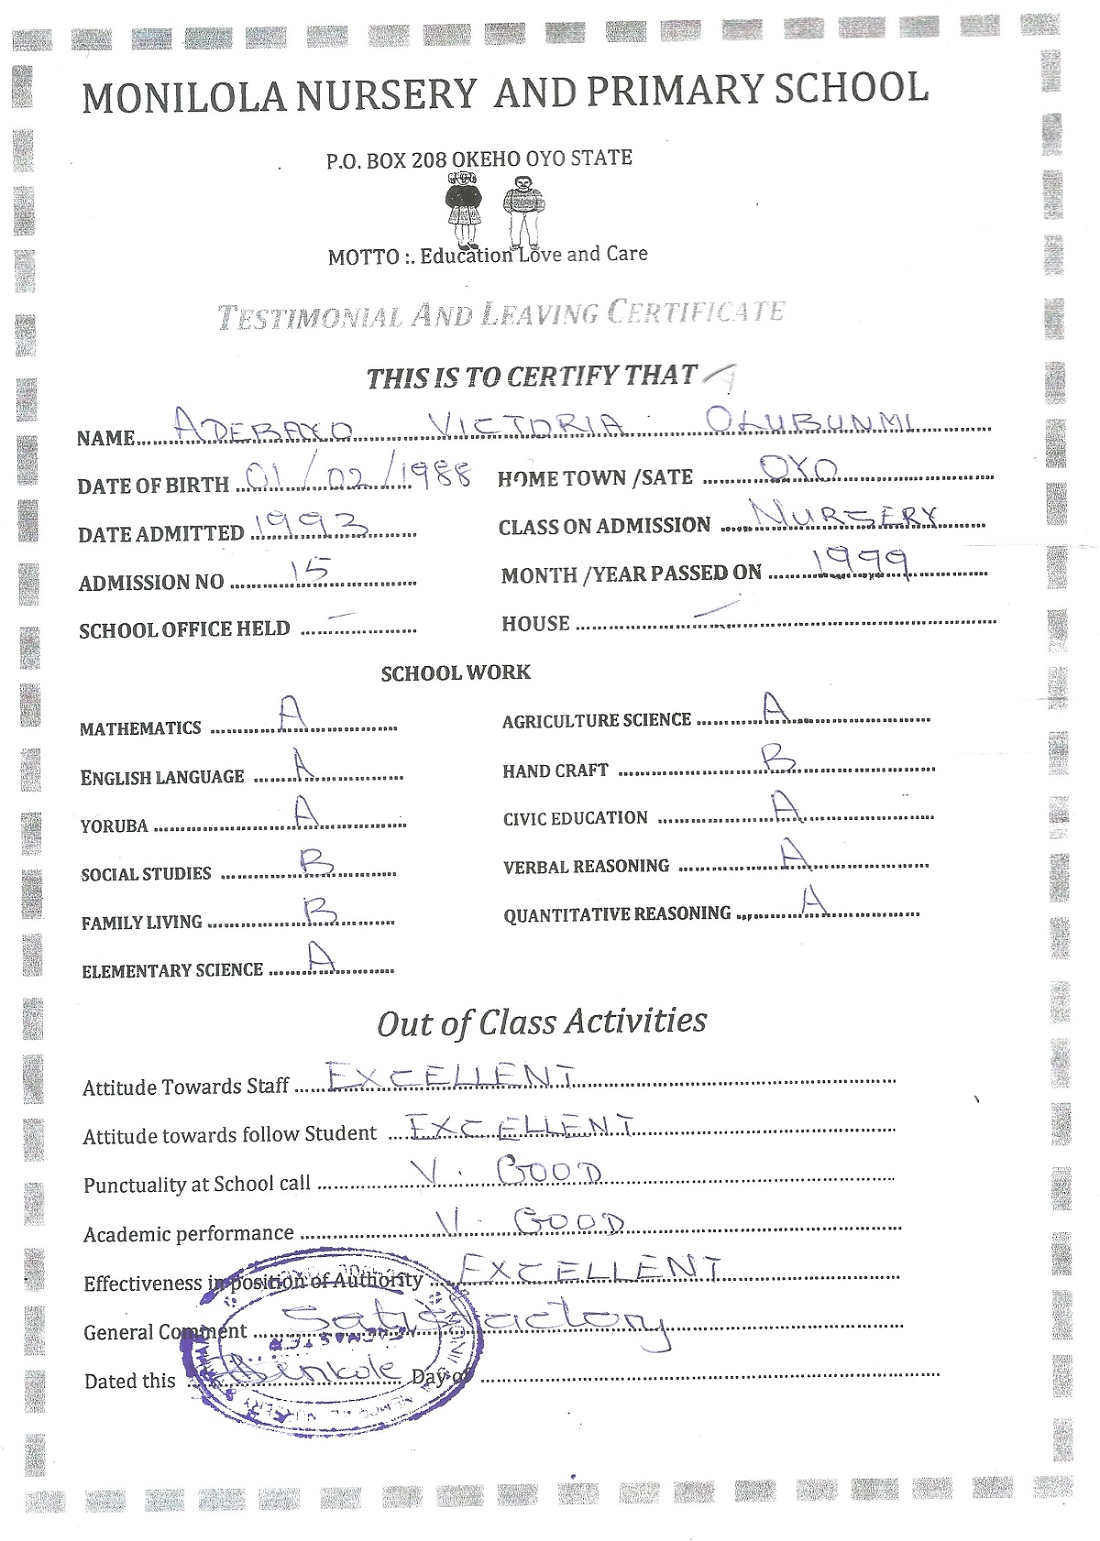 MONILOLA NURSERY AND PRIMARY SCHOOL
P.O. BOX 208 OKEHO OYO STATE
MOTTO :. Education Love and Care
TESTIMONIAL AND LEAVING CERTIFICATE
THIS IS TO CERTIFY THAT
NAME..... ADEBAYO VICTORIA OLUBUNMI
DATE OF BIRTH ... 01/02/1988 HOME TOWN /SATE ... OYO
DATE ADMITTED ... 1993 CLASS ON ADMISSION ... NURSERY
ADMISSION NO ... 15 MONTH /YEAR PASSED ON ... 1999
SCHOOL OFFICE HELD ... — HOUSE ... —
SCHOOL WORK
MATHEMATICS ... A AGRICULTURE SCIENCE ... A
ENGLISH LANGUAGE ... A HAND CRAFT ... B
YORUBA ... A CIVIC EDUCATION ... A
SOCIAL STUDIES ... B VERBAL REASONING ... A
FAMILY LIVING ... B QUANTITATIVE REASONING ... A
ELEMENTARY SCIENCE ... A
Out of Class Activities
Attitude Towards Staff ... EXCELLENT
Attitude towards follow Student ... EXCELLENT
Punctuality at School call ... V. GOOD
Academic performance ... V. GOOD
Effectiveness in position of Authority ... EXCELLENT
General Comment ... Satisfactory
Dated this ... Day of ...